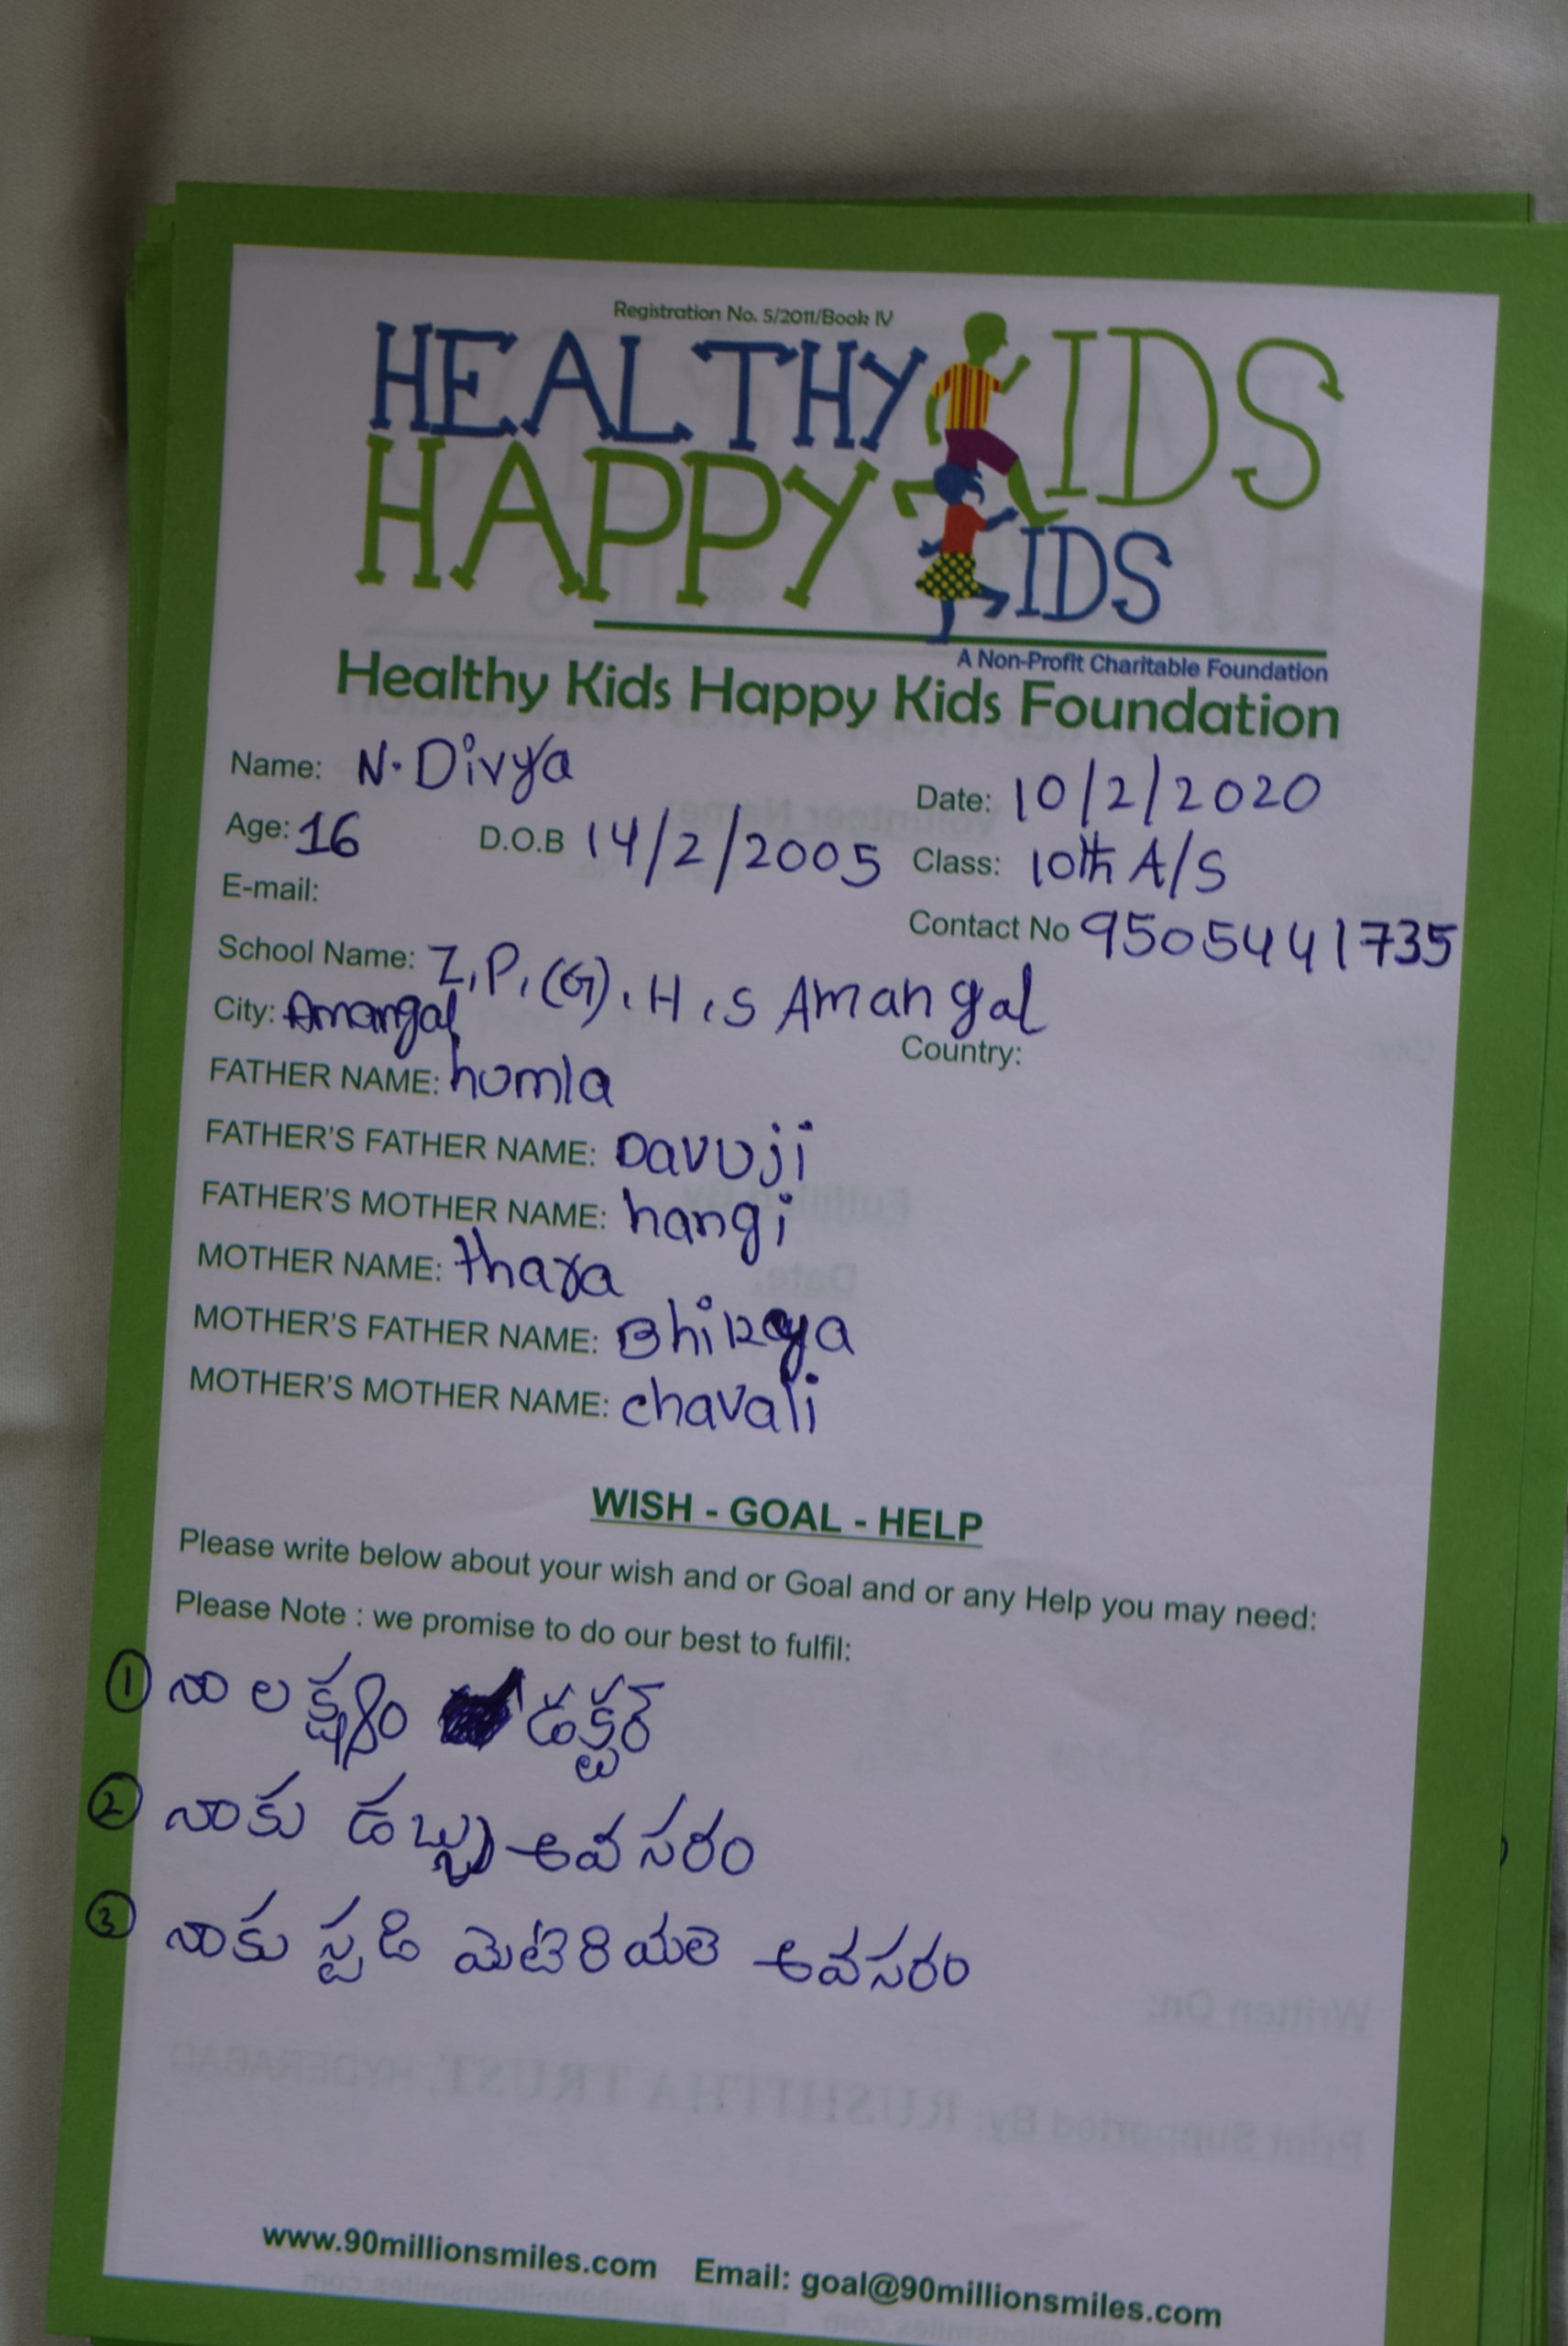 Registration No. 5/2011/Book IV
HEALTHY KIDS
HAPPY KIDS
A Non-Profit Charitable Foundation
Healthy Kids Happy Kids Foundation
Name: N. Divya
Date: 10/2/2020
Age: 16 D.O.B 14/2/2005 Class: 10th A/S
E-mail:
Contact No 9505441735
School Name: Z.P.(G).H.S Amangal
City: Amangal
Country:
FATHER NAME: humla
FATHER'S FATHER NAME: Davuji
FATHER'S MOTHER NAME: hangi
MOTHER NAME: thara
MOTHER'S FATHER NAME:
MOTHER'S MOTHER NAME: chavali
WISH - GOAL - HELP
Please write below about your wish and or Goal and or any Help you may need:
Please Note : we promise to do our best to fulfil:
1 నా లక్ష్యం డక్టర్
2 నాకు డబ్బు అవసరం
3 నాకు స్టడి మెటెరియలె అవసరం
Written On:
Print Supported By: RUSHITHA TRUST, HYDERABAD
www.90millionsmiles.com Email: goal@90millionsmiles.com